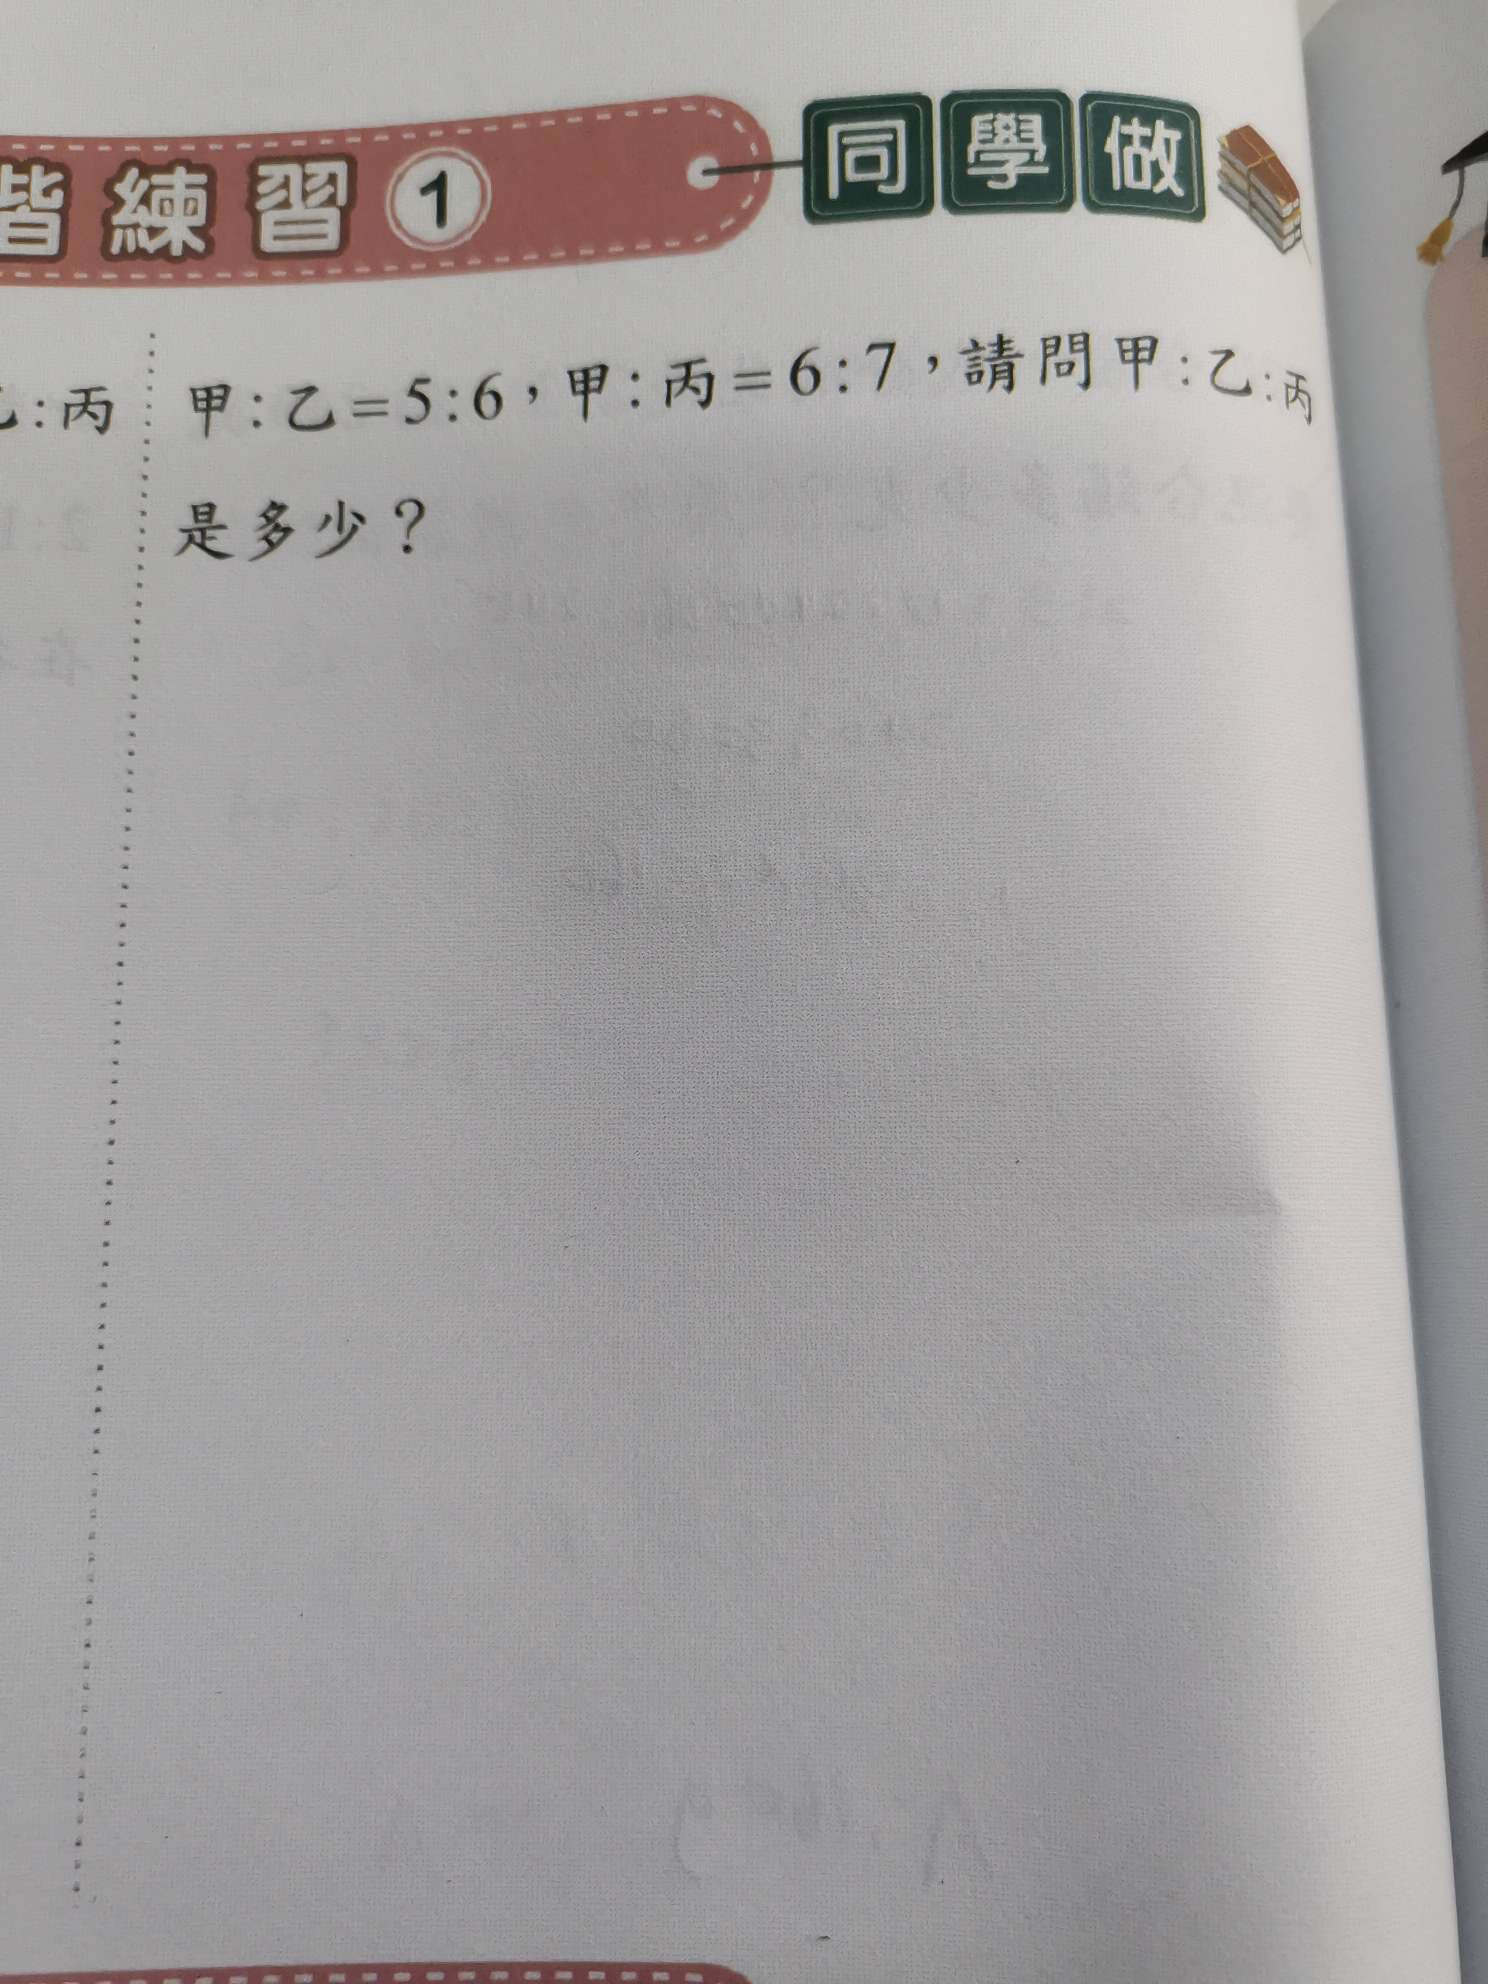 階練習① 同學做
乙：丙
甲：乙＝5：6，甲：丙＝6：7，請問甲：乙：丙
是多少？